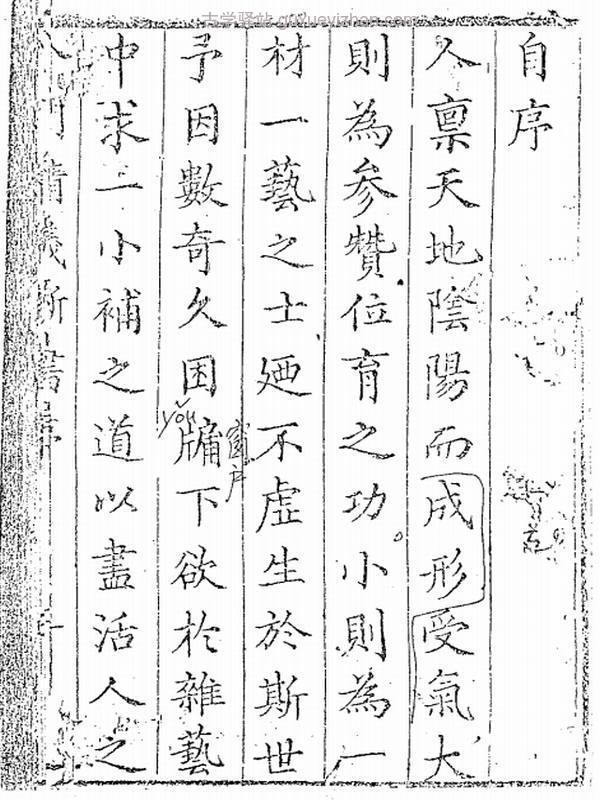 古学驿站 guxueyizhan.com
自序
人稟天地陰陽而成形受氣大
則為参贊位育之功。小則為一
材一藝之士廼不虛生於斯世
予因數奇久困牖下欲於雜藝
yǒu
窗户
中求二小補之道以盡活人之